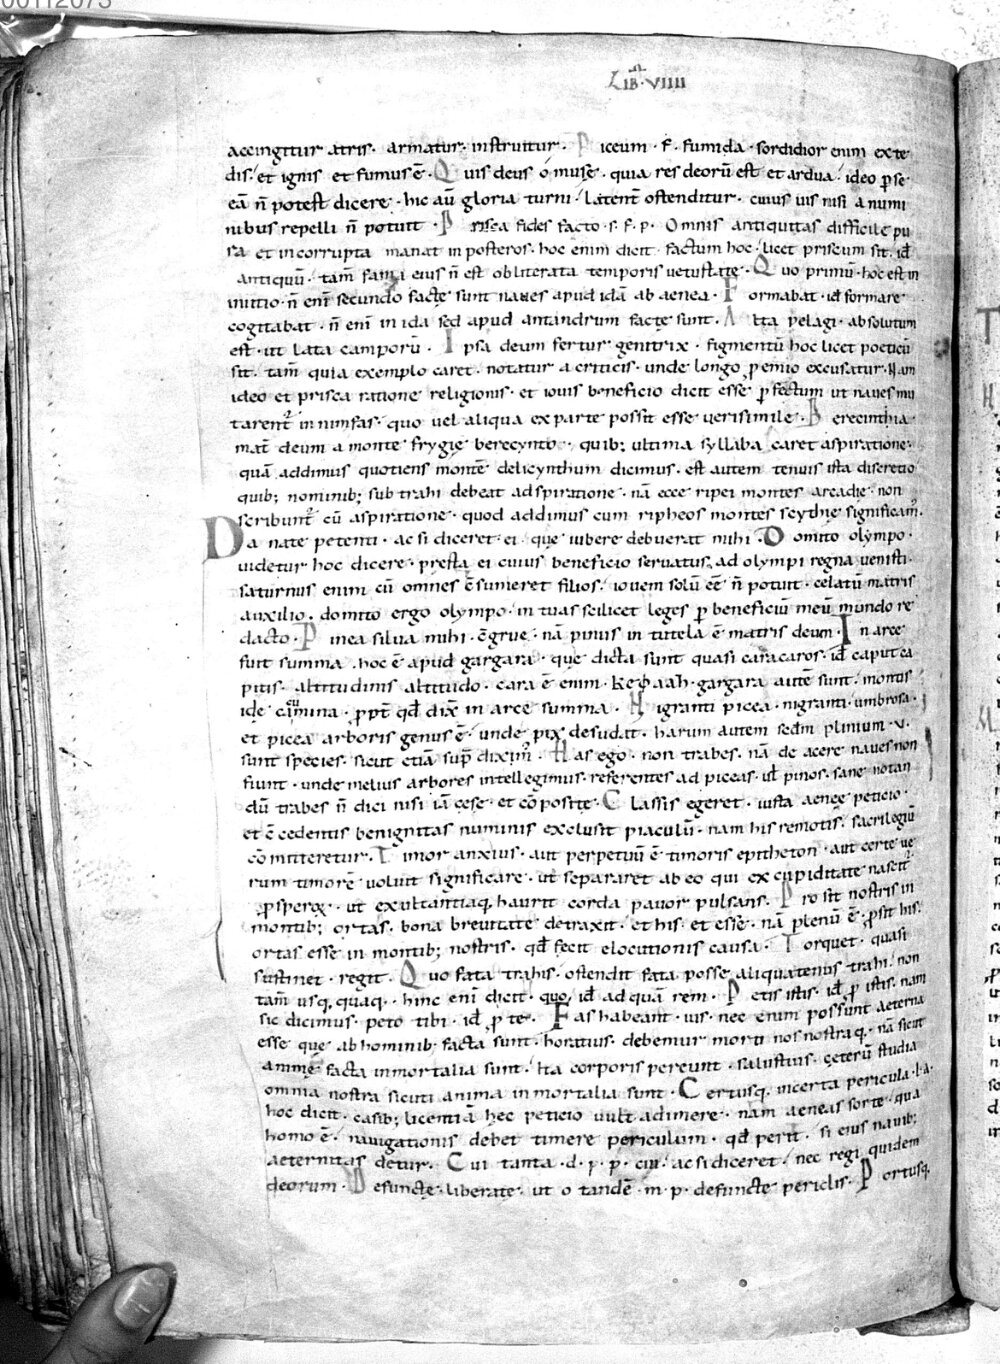 00112073
Lib̅. VIIII
accingitur atris. armatur. instruitur. Piceum. f. fumida. sordidior enim ex te
dis. et ignis et fumus ē. Quis deus o muse. quia res deorū est et ardua. ideo p̱ se
eā n̄ potest dicere. hic aū gloria turni. latent ostenditur. cuius uis nisi a numi
nibus repelli n̄ potuit. Prisca fides facto. s. f. p. Omnis antiquitas difficile pu
ra et incorrupta manat in posteros. hoc enim dicit factum hoc. licet priscum sit. id̄
antiquū. tam̄ fama eius n̄ est obliterata temporis uetustate. Quo primū. hoc est in
initio. n̄ eni̅ secundo facte sunt naues apud idā ab aenea. Formabat. id̄ formare
cogitabat. n̄ eni̅ in ida sed apud antandrum facte sunt. Alta pelagi. absolutum
est. ut lata camporū. Ipsa deum fertur genitrix. figmentū hoc licet poeticū
sit. tam̄ quia exemplo caret. notatur a criticis. unde longo p̱emio excusatur. Nam
ideo et prisca ratione religionis. et iouis beneficio dicit esse p̱fectum ut naues mu
tarent᷒ in nimfas. quo uel aliqua ex parte possit esse uerisimile. Berecinthia
mat̄ deum a monte frygie berecynto. quib; ultima syllaba caret aspiratione.
quā addimus quotiens montē delicynthum dicimus. est autem tenuis ista discretio
quib; nominib; subtrahi debeat adspiratione. nā ecce ripei montes arcadie. non
scribunt᷒ cū aspiratione. quod addimus cum ripheos montes scythie significam᷒.
Da nate petenti. ac si diceret ei. que iubere debuerat mihi. Domito olympo.
uidetur hoc dicere. presta ei cuius beneficio seruatus. ad olympi regna uenisti.
saturnus enim cū omnes c̄sumeret filios. iouem solū etē n̄ potuit. celatū matris
auxilio. domito ergo olympo. in tuas scilicet leges p̱ beneficiū meū mundo re
dacto. Pinea silua mihi. c̄grue. nā pinus in tutela ē matris deum. In arce
fuit summa. hoc ē apud gargara. que dicta sunt quasi caracaros. id̄ caput ca
pitis. altitudinis altitudo. cara ē enim. κεφαλη. gargara autē sunt. montis
ide cac̄umina. p̱pt̄ qd̄ dix̄ in arce summa. Nigranti picea. nigranti. umbrosa.
et picea arboris genus ē. unde pix desudat. harum autem sedm̄ plinium. v.
sunt species. sicut etiā sup̄ diximᷤ. Has ego. non trabes. nā de acere naues non
fiunt. unde melius arbores intellegimus. referentes ad piceas. ul̄ pinos. sane notan
dū trabes n̄ dici nisi iā cęse. et cōposite. Classis egeret. iusta aenee peticio.
et c̄cedentis benignitas numinis exclusit piaculū. nam his remotis. sacrilegiū
cōmitteretur. Timor anxius. aut perpetuū ē timoris epitheton. aut certe ue
rum timorē uoluit significare. ut separaret ab eo qui ex cupiditate nascit᷒
p̱speroꝝ. ut exultantiaq. haurit corda pauor pulsans. Pro sit nostris in
montib; ortas. bona breuitate detraxit. et his. et esse. nā plenū ē. p̱sit his.
ortas esse in montib; nostris. qd̄ fecit elocutionis causa. Torquet. quasi
sustinet. regit. Quo fata trahis. ostendit fata posse aliquatenus trahi. non
tam̄ usq. quaq. hinc eni̅ dicit. quo. id̄ ad quā rem. Petis istis. id̄ p̱ istis. nam
sic dicimus. peto tibi. id̄ p̱ te. Fas habeant. uis. nec enim possunt aeterna
esse que ab hominib; facta sunt. horatius. debemur morti nos nostraq. nā sicut
anime facta inmortalia sunt. ita corporis pereunt. salustius. ceterū studia
omnia nostra sicuti anima inmortalia sunt. Certusq. incerta pericula. l. a.
hoc dicit. casib; licentiā hec peticio uult adimere. nam aeneas sorte. qua
homo ē. nauigationis debet timere periculum. qd̄ perit. si eius nauib;
aeternitas detur. Cui tanta. d. p. p. cui. ac si diceret. nec regi quidem
deorum. Defuncte. liberate. ut o tandē. m. p. defuncte periclis. Portusq.